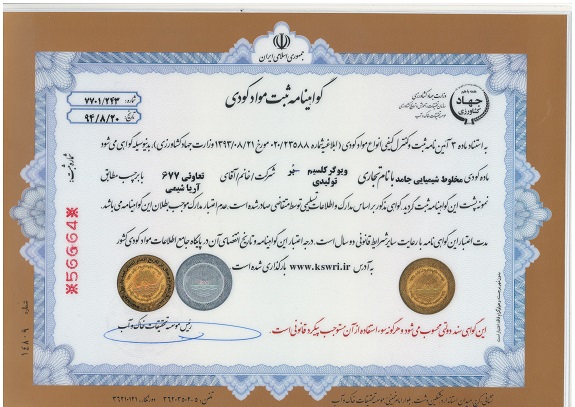 جمهوری اسلامی ایران
گواهینامه ثبت مواد کودی
شماره: ۷۷۰۱/۲۴۳
تاریخ: ۹۴/۸/۲۰
وزارت جهاد کشاورزی
جهاد کشاورزی
به استناد ماده ۳ آئین نامه ثبت و کنترل کیفی انواع مواد کودی (ابلاغیه شماره ۰۲۰/۲۳۵۸۸ مورخ ۱۳۹۳/۰۸/۲۱ وزارت جهاد کشاورزی)، بدینوسیله گواهی می شود
ماده کودی مخلوط شیمیایی جامد با نام تجاری ویوگر کلسیم بُر تولیدی شرکت/خانم/آقای تعاونی ۶۷۷ آریا شیمی با برچسب مطابق
نمونه پشت این گواهینامه ثبت گردید. گواهی مذکور بر اساس مدارک و اطلاعات تسلیمی توسط متقاضی صادر شده است. عدم اعتبار مدارک موجب بطلان این گواهینامه می باشد.
مدت اعتبار این گواهی نامه با رعایت سایر شرایط قانونی دو سال است. درجه اعتبار این گواهینامه و تاریخ انقضای آن در پایگاه جامع اطلاعات مواد کودی کشور
به آدرس www.kswri.ir بارگذاری شده است
شماره ثبت:
※56664※
این گواهی سند دولتی محسوب می شود و هرگونه سوء استفاده از آن مستوجب پیگرد قانونی است.
رئیس موسسه تحقیقات خاک و آب
شماره ۱۴۸۰۹
تلفن: ۵-۳۶۲۰۲۵۰ دورنگار: ۳۶۲۱۰۱۲۱